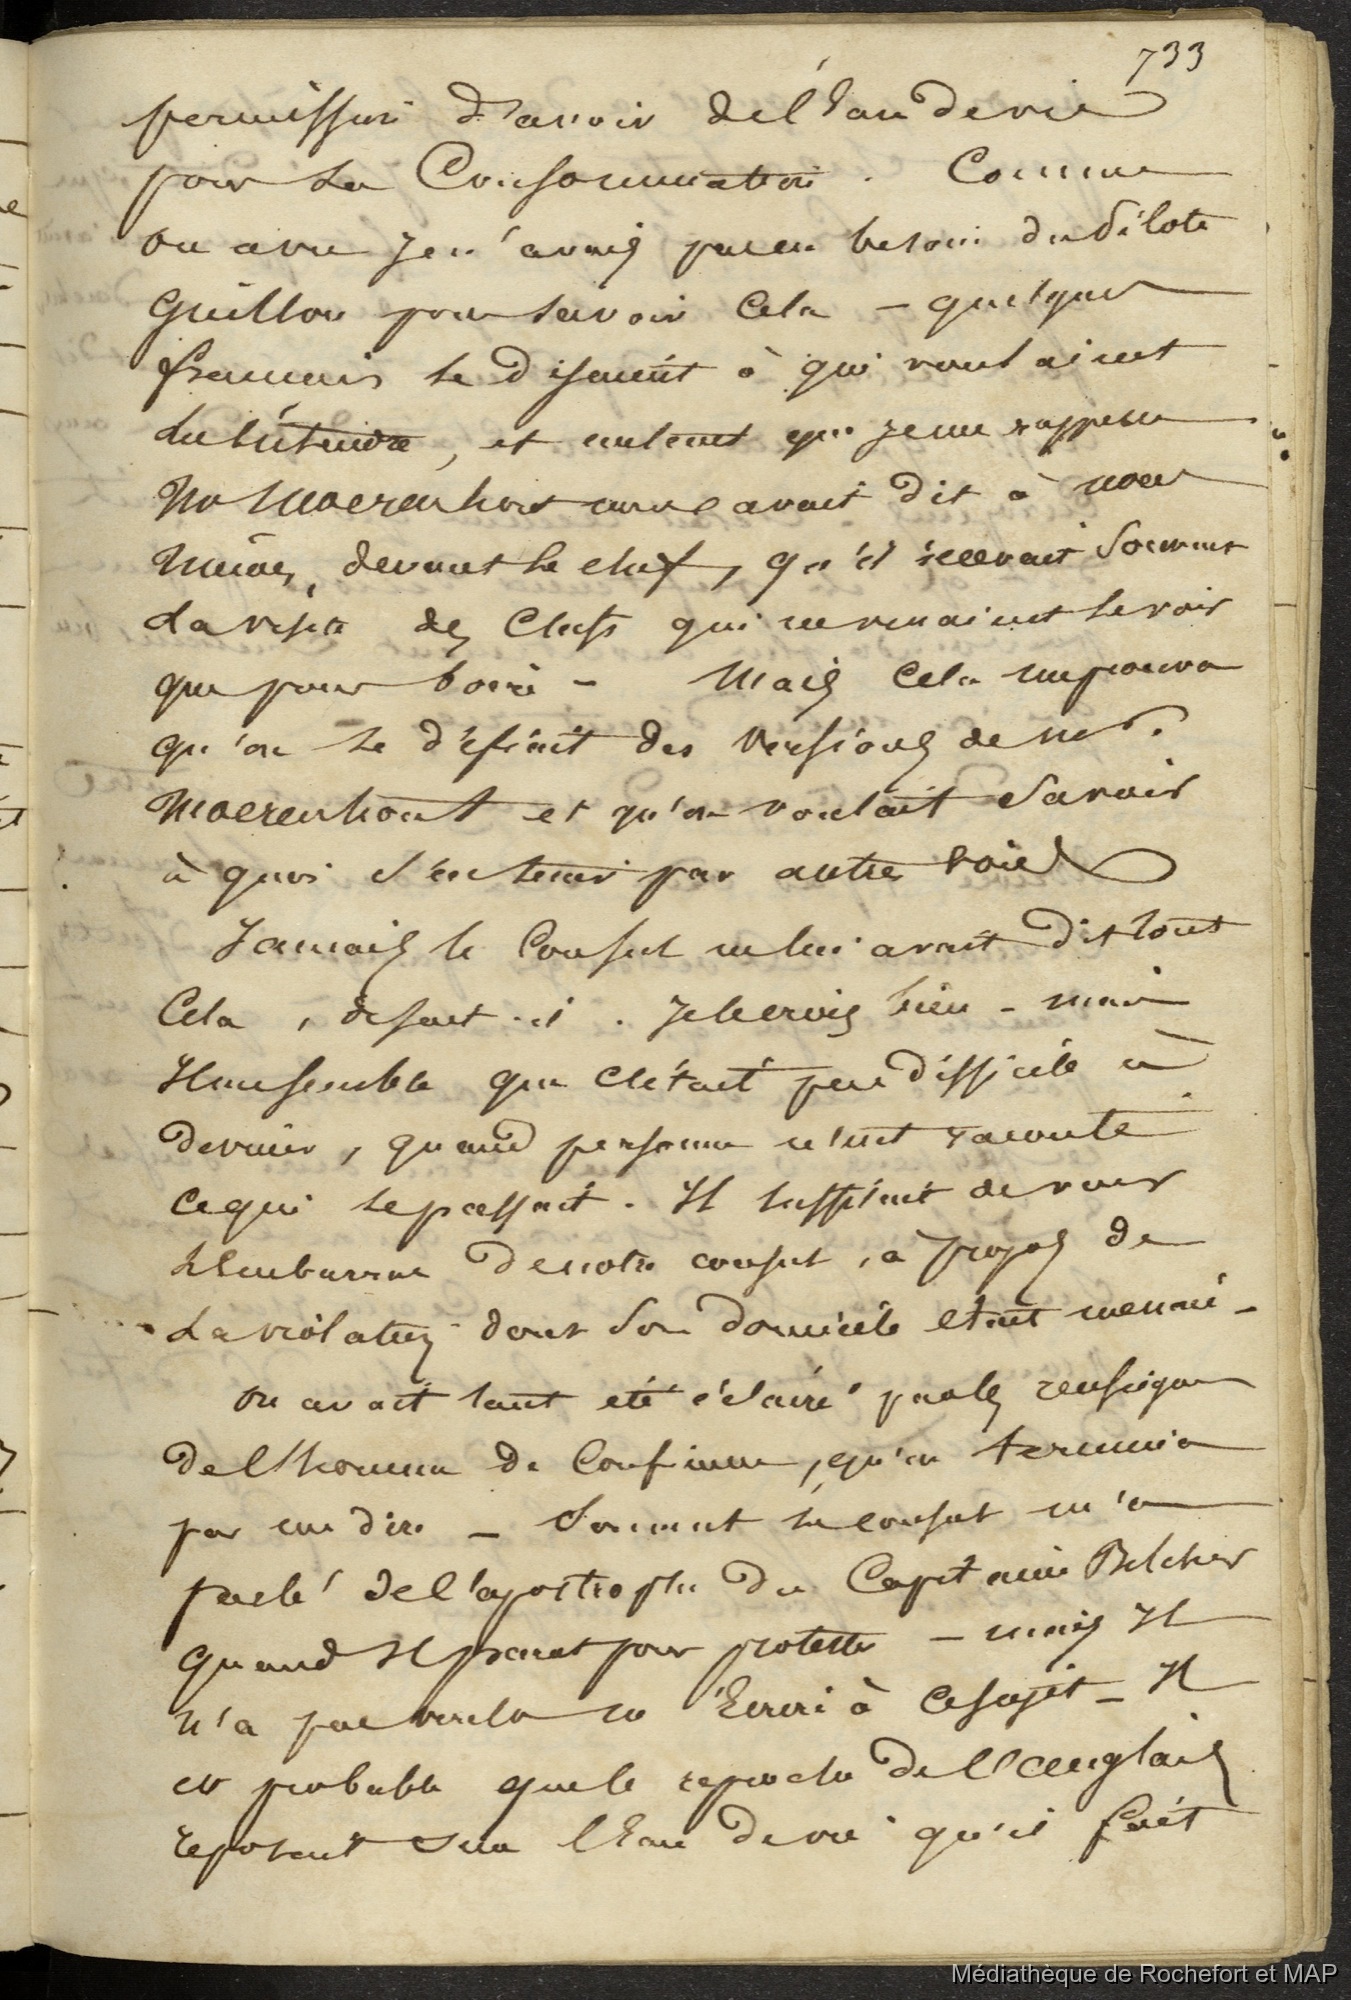 733
permission d'avoir de l'Eau de vie
pour sa Consommation. Comme
on a vu je n'avais pas eu besoin du Pilote
Guillou pour savoir Cela — quelques
français le disaient à qui voulaient
l'entendre, et autant que je me rappelle
Mr Moerenhout avait dit à nous
mêmes, devant le chef, qu'il recevait souvent
la visite des Chefs qui ne venaient le voir
que pour boire — Mais Cela me prouva
qu'on se défiait des versions de Mr.
Moerenhout et qu'on voulait savoir
à quoi s'en tenir par autre voie
Jamais le Consul ne lui avait dit tout
Cela, disait-il. Je le crois bien — mais
Il me semble que c'était peu difficile à
deviner, quand personne n'eut raconté
ce qui se passait. Il suffisait de voir
L'Embarras de notre consul, à propos de
La violation dont son domicile était menacé —
On avait tant été éclairé par les renseignem
de l'homme de Confiance, qu'on termina
par me dire — Souvent le consul m'a
parlé de l'apostrophe du Capitaine Belcher
quand Il parut pour protester — mais Il
n'a pas voulu m'Ecrire à ce sujet — Il
est probable que le reproche de l'anglais
reposait sur l'Eau de vie qu'il fait
Médiathèque de Rochefort et MAP